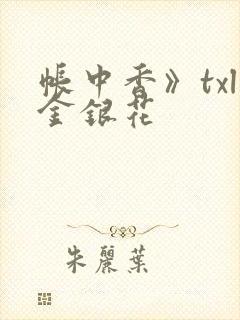 帳中香》txl
金銀花
朱麗葉